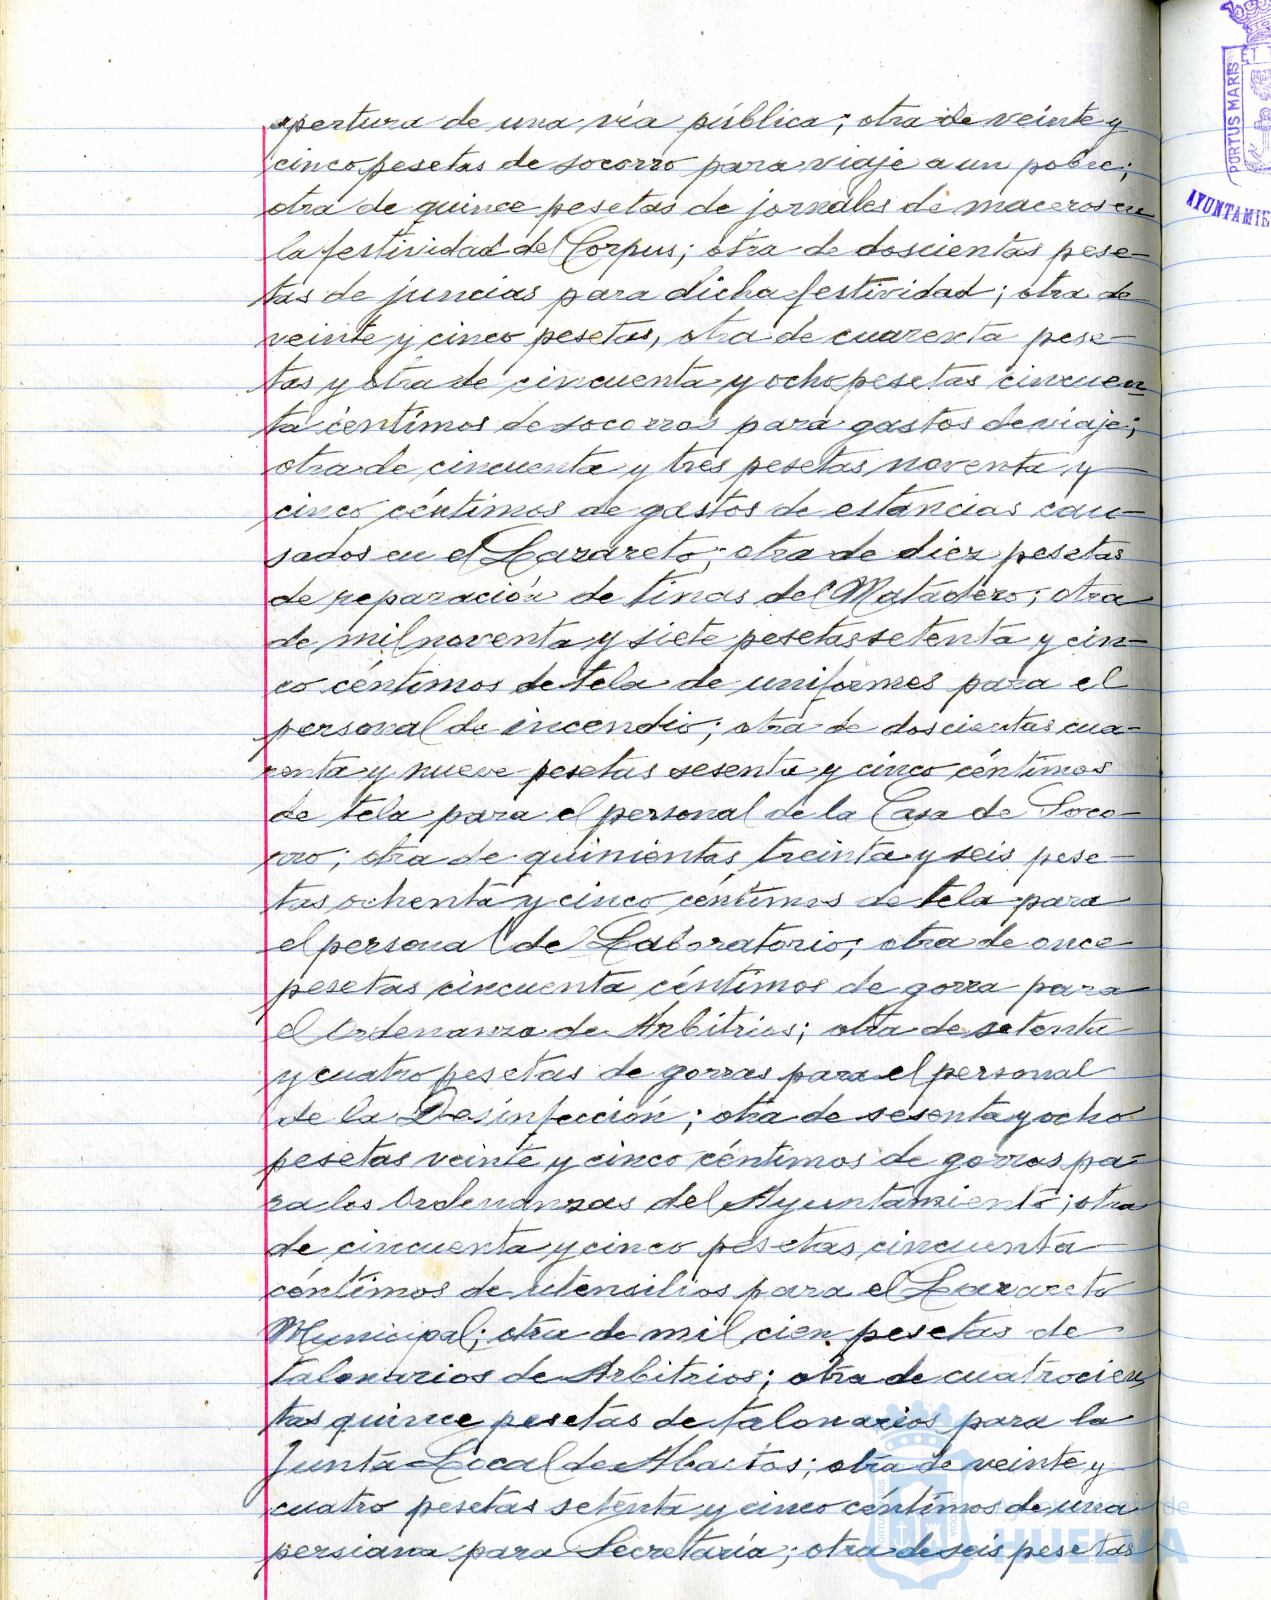 apertura de una vía pública; otra de veinte y
cinco pesetas de socorro para viaje a un pobre;
otra de quince pesetas de jornales de maceros en
la festividad del Corpus; otra de doscientas pese-
tas de juncias para dicha festividad; otra de
veinte y cinco pesetas, otra de cuarenta pese-
tas y otra de cincuenta y ocho pesetas cincuen-
ta céntimos de socorros para gastos de viaje;
otra de cincuenta y tres pesetas noventa y
cinco céntimos de gastos de estancias cau-
sados en el Lazareto; otra de diez pesetas
de reparación de tinas del Matadero; otra
de mil noventa y siete pesetas setenta y cin-
co céntimos de tela de uniformes para el
personal de incendio; otra de doscientas cua-
renta y nueve pesetas sesenta y cinco céntimos
de tela para el personal de la Casa de Soco-
rro; otra de quinientas treinta y seis pese-
tas ochenta y cinco céntimos de tela para
el personal del Laboratorio; otra de once
pesetas cincuenta céntimos de gorra para
el Ordenanza de Arbitrios; otra de setenta
y cuatro pesetas de gorras para el personal
de la Desinfección; otra de sesenta y ocho
pesetas veinte y cinco céntimos de gorras pa-
ra los Ordenanzas del Ayuntamiento; otra
de cincuenta y cinco pesetas cincuenta
céntimos de utensilios para el Lazareto
Municipal; otra de mil cien pesetas de
talonarios de Arbitrios; otra de cuatrocien-
tas quince pesetas de talonarios para la
Junta Local de Abastos; otra de veinte y
cuatro pesetas setenta y cinco céntimos de una
persiana para Secretaría; otra de seis pesetas
PORTUS MARIS
AYUNTAMIE
de
HUELVA